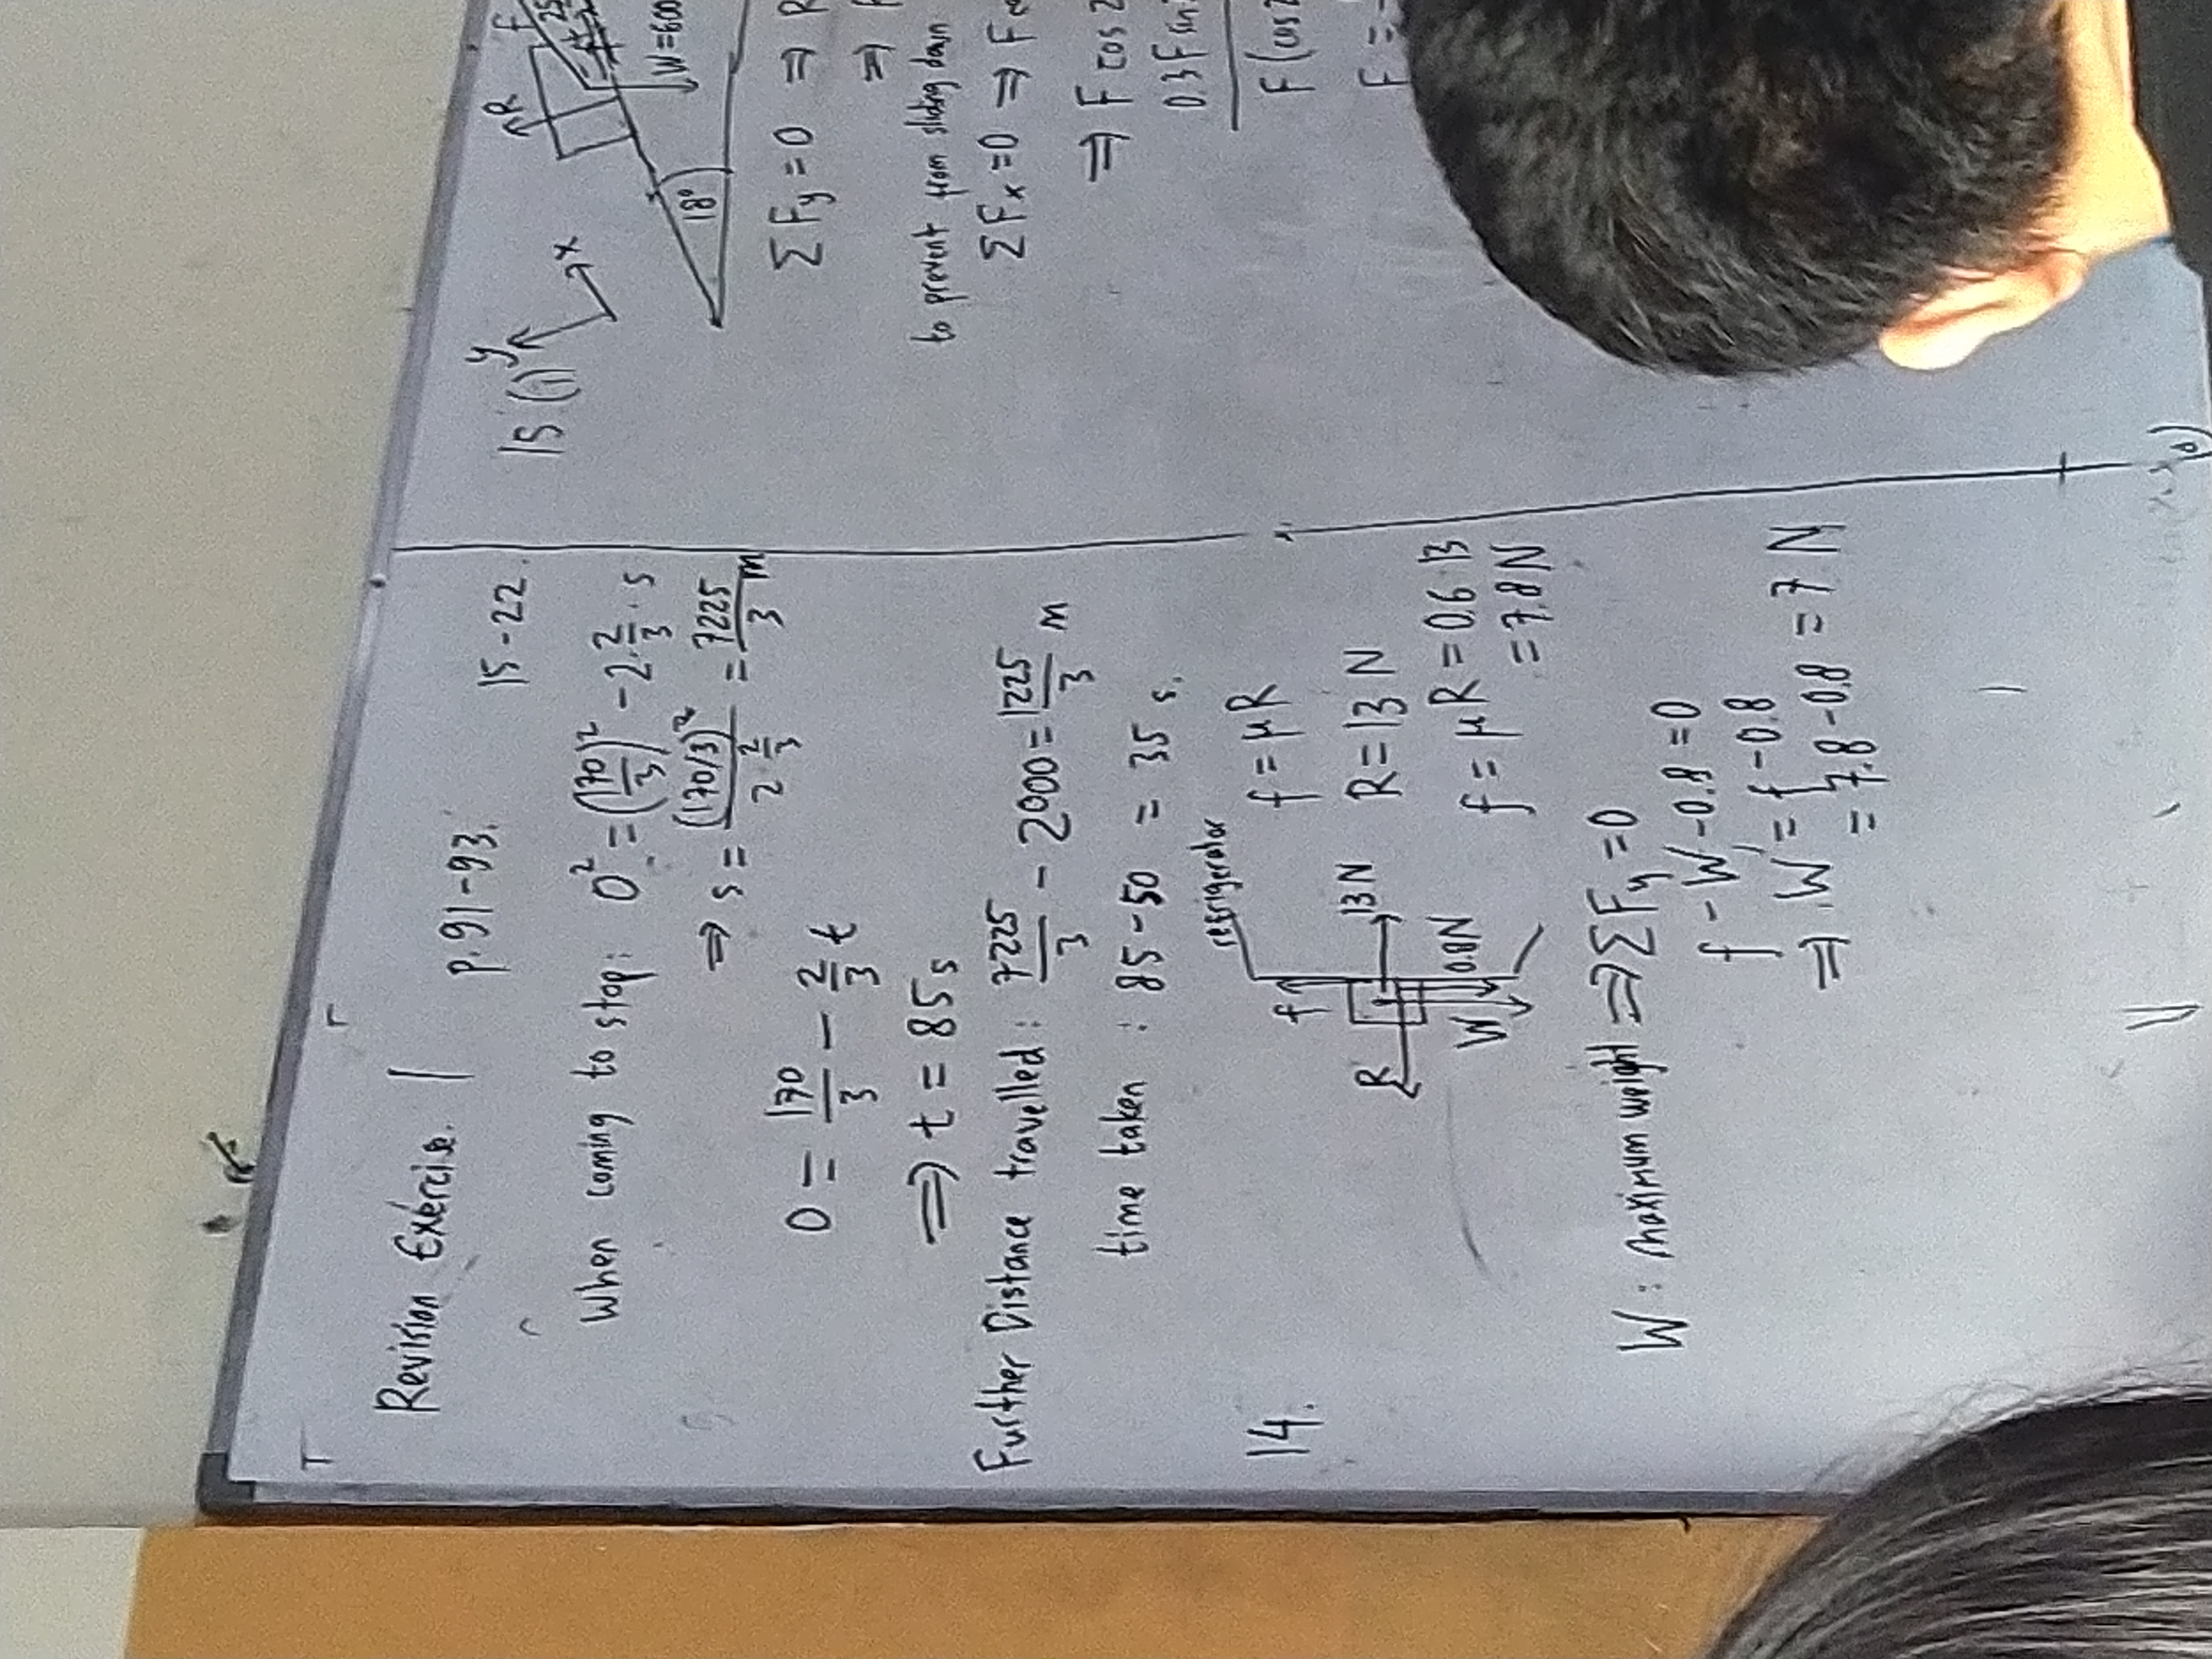 Revision Exercise. 1
p. 91-93.
15-22.
When coming to stop: 0² = (170/3)² - 2·2/3·s
⇒ s = (170/3)²/(2 2/3) = 7225/3 m
0 = 170/3 - 2/3 t
⇒ t = 85 s
Further Distance travelled: 7225/3 - 2000 = 1225/3 m
time taken : 85-50 = 35 s.
14.
refrigerator
f
R
13 N
W
0.8N
f = μR
R = 13 N
f = μR = 0.6·13
= 7.8 N
W: maximum weight ⇒ ΣFy = 0
f - W - 0.8 = 0
⇒ W = f - 0.8
= 7.8 - 0.8 = 7 N
15 (i)
y
x
R
F
25
18°
W = 600
ΣFy = 0 ⇒ R
⇒
to prevent from sliding down
ΣFx = 0 ⇒ F
⇒ F cos 2
0.3F sin
F (cos 2
F =